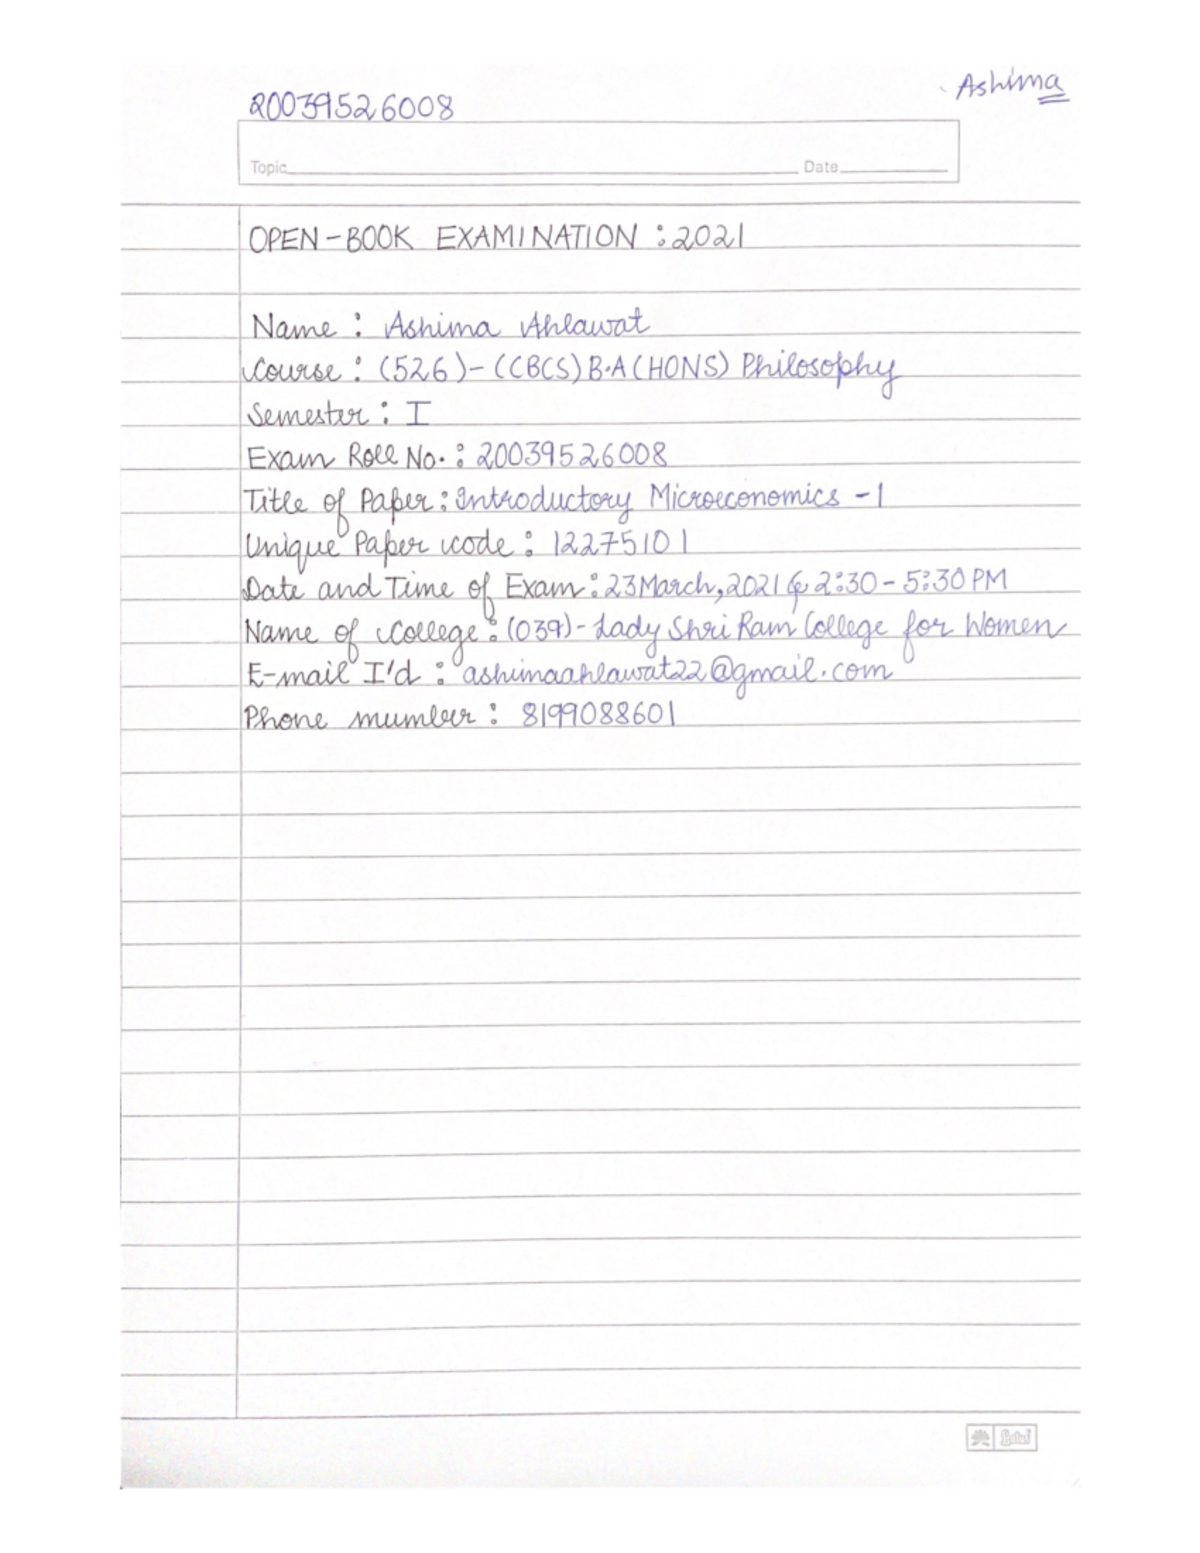 Ashima
20039526008
Topic Date
OPEN-BOOK EXAMINATION : 2021
Name : Ashima Ahlawat
Course : (526)-(CBCS) B.A (HONS) Philosophy
Semester : I
Exam Roll No. : 20039526008
Title of Paper : Introductory Microeconomics -1
Unique Paper code : 12275101
Date and Time of Exam : 23 March, 2021 @ 2:30 - 5:30 PM
Name of College : (039)- Lady Shri Ram College for Women
E-mail I'd : ashimaahlawat22@gmail.com
Phone number : 8199088601